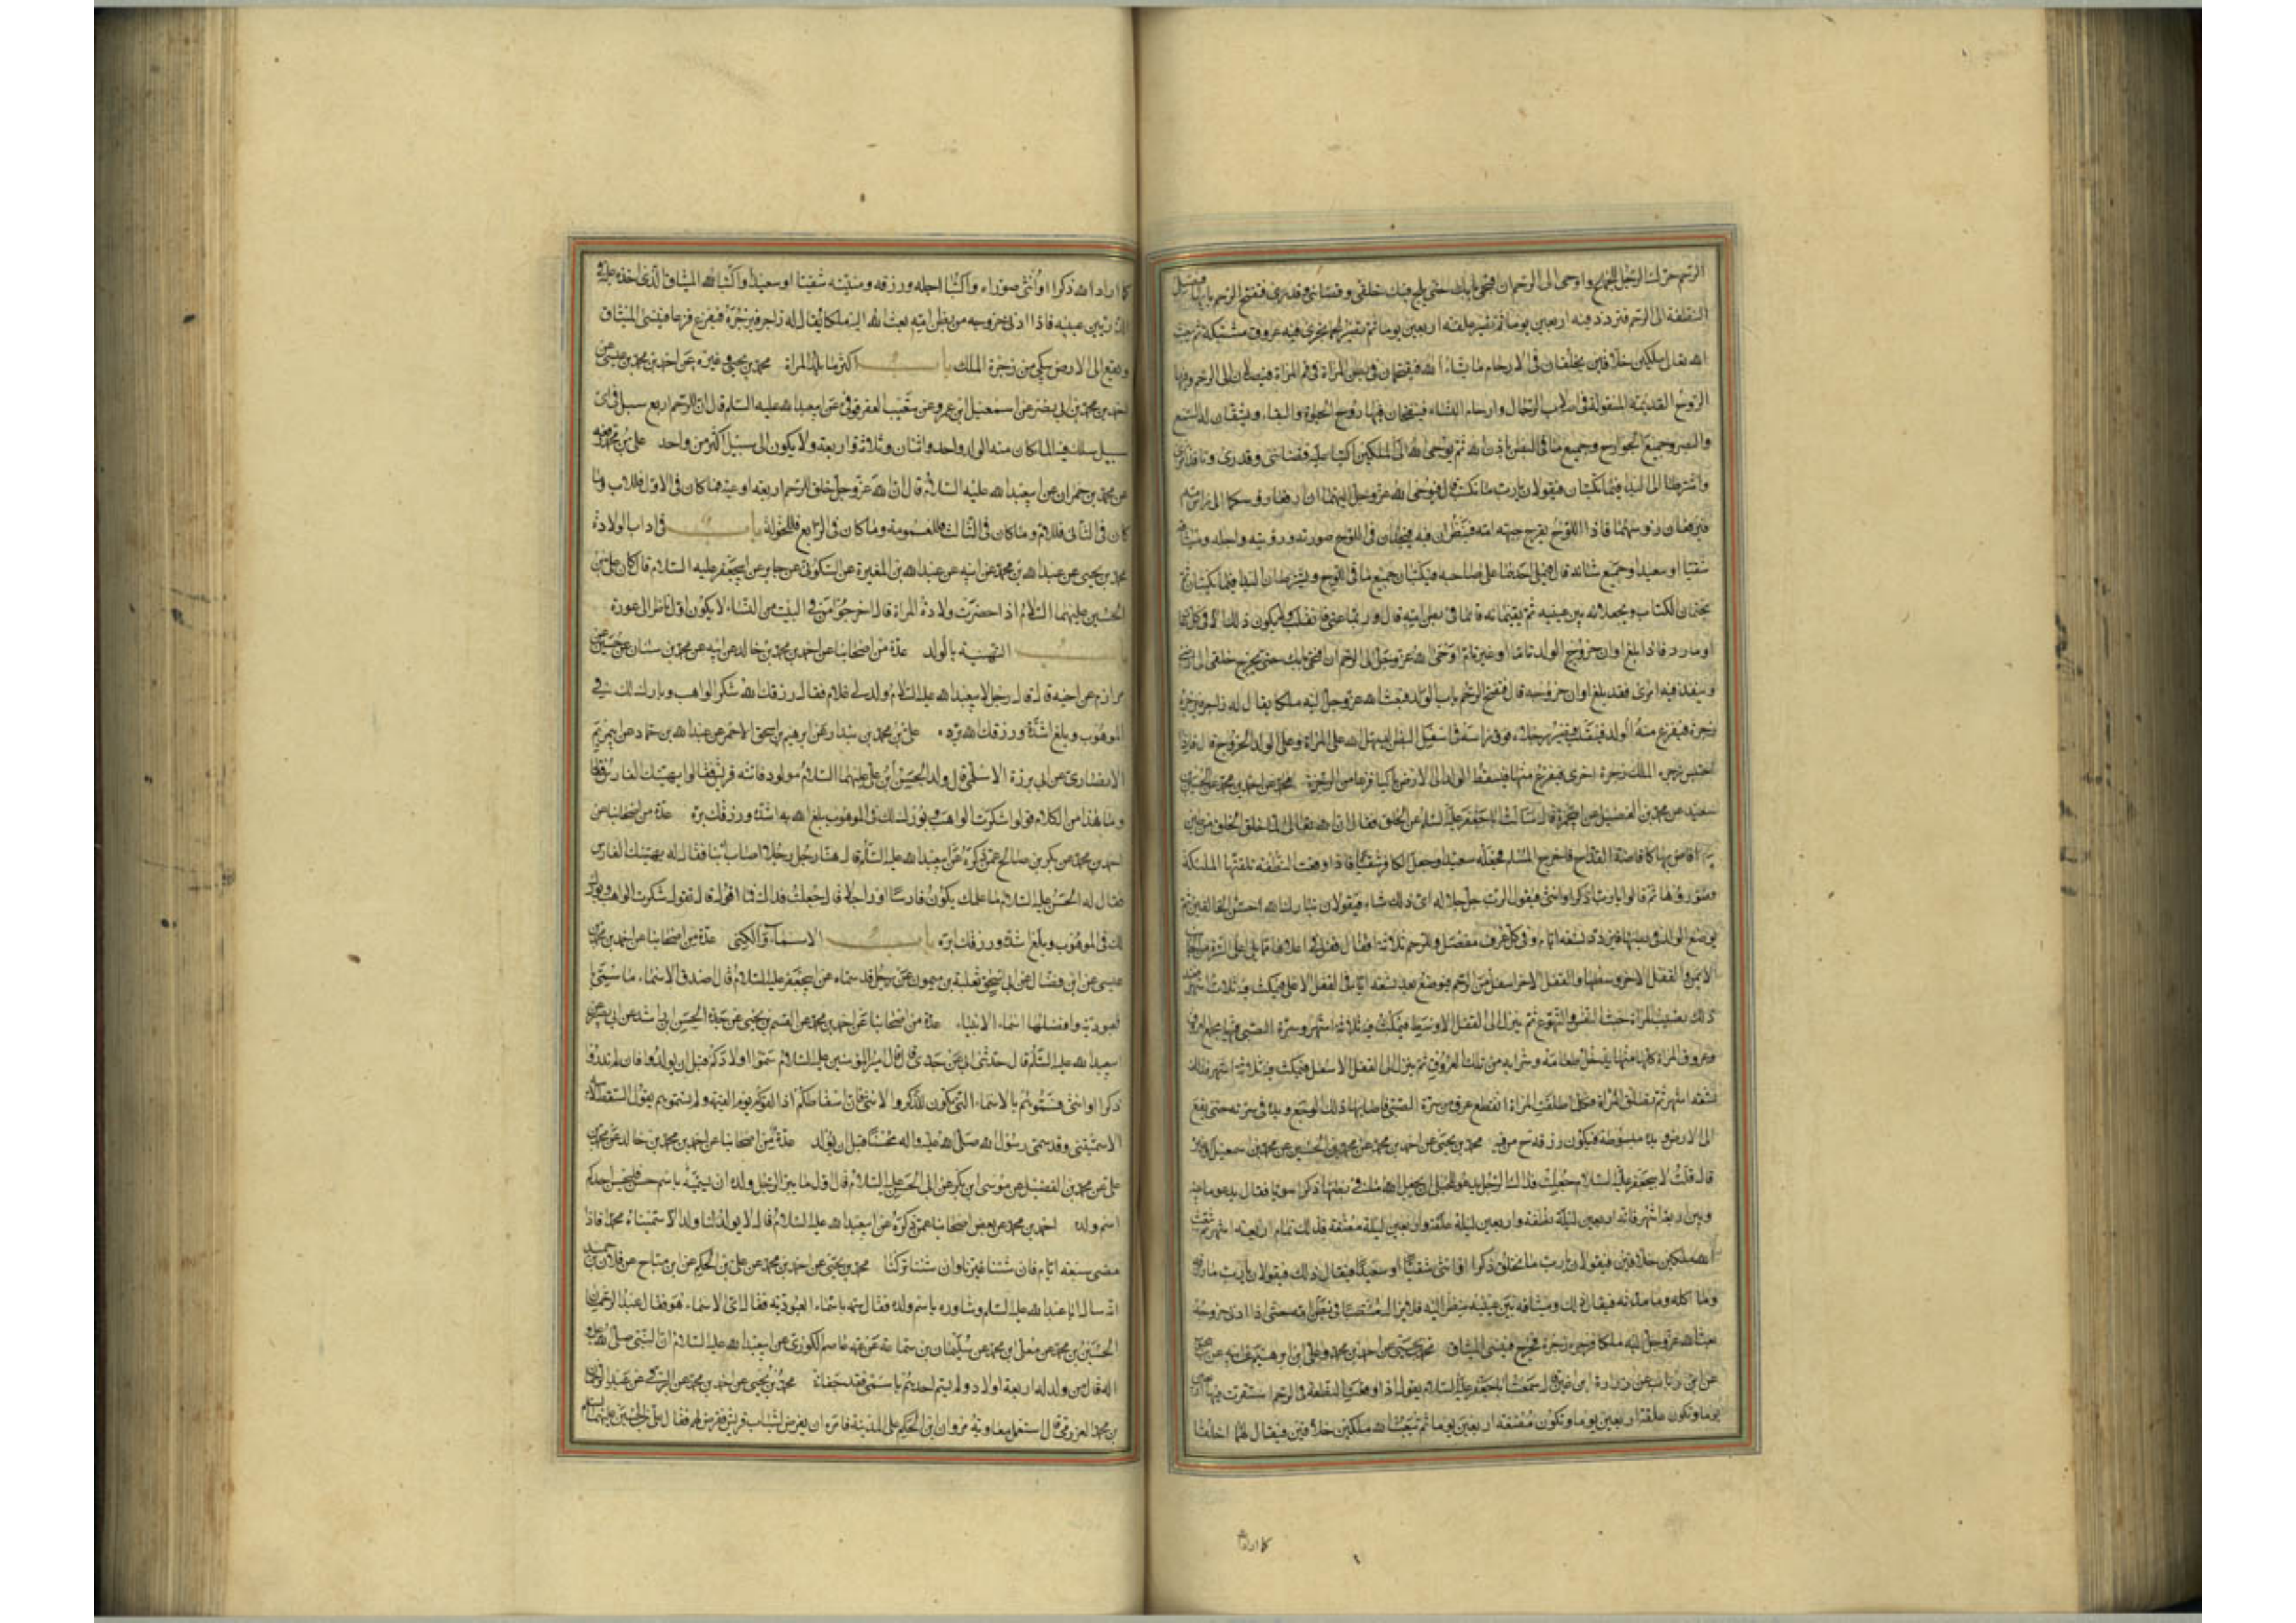 الرحم حرك الرجل للجماع واوحى الى الرحم ان افتحى بابك حتى يلج فيك خلقى وقضائى وقدرى فتفتح الرحم بابها فتصل
النطفة الى الرحم فتردد فيه اربعين يوما ثم تصير علقة اربعين يوما ثم تصير لحما تجرى فيه عروق مشتبكة ثم يبعث
الله تعالى ملكين خلاقين يخلقان فى الارحام ما يشاء الله فيقتحمان فى بطن المراة من فم المراة فيصلان الى الرحم وفيها
الروح القديمة المنقولة فى اصلاب الرجال وارحام النساء فينفخان فيها روح الحيوة والبقاء ويشقان له السمع
والبصر وجميع الجوارح وجميع ما فى البطن باذن الله ثم يوحى الله الى الملكين اكتبا عليه قضائى وقدرى ونافذ امرى
واشترطا لى البدا فيما تكتبان فيقولان يارب ما نكتب قال فيوحى الله عز وجل اليهما ان ارفعا روسكما الى راس امه
فيرفعان روسهما فاذا اللوح يقرع جبهة امه فينظران فيه فيجدان فى اللوح صورته ورؤيته واجله وميثاقه
شقيا او سعيدا وجميع شانه قال فيملى احدهما على صاحبه فيكتبان جميع ما فى اللوح ويشترطان البدا فيما يكتبان ثم
يختمان الكتاب ويجعلانه بين عينيه ثم يقيمانه قائما فى بطن امه قال وربما عتى فانقلب ولا يكون ذلك الا فى كل عات
او مارد فاذا بلغ اوان خروج الولد تاما او غير تام اوحى الله عز وجل الى الرحم ان افتحى بابك حتى يخرج خلقى الى ارضى
وينفذ فيه امرى فقد بلغ اوان خروجه قال فتفتح الرحم باب الولد فيبعث الله عز وجل اليه ملكا يقال له زاجر فيزجره
زجرة فيفزع منها الولد فينقلب فتصير رجلاه فوق راسه فى اسفل البطن ليسهل الله على المراة وعلى الولد الخروج قال فاذا
احتبس زجره الملك زجرة اخرى فيفزع منها فيسقط الولد الى الارض باكيا فزعا من الزجرة محمد عن احمد بن محمد عن الحسين بن
سعيد عن محمد بن الفضيل عن ابى حمزة قال سالت ابا جعفر عليه السلم عن الخلق فقال ان الله تعالى لما خلق الخلق من طين
افاض بها كافاضة القداح فاخرج المسلم فجعله سعيدا وجعل الكافر شقيا فاذا وقعت النطفة تلقتها الملئكة
فصوروها ثم قالوا يارب اذكرا او انثى فيقول الرب جل جلاله اى ذلك شاء فيقولان تبارك الله احسن الخالقين ثم
يوضع الولد فى بطنها فتردد تسعة ايام فى كل عرق ومفصل وللرحم ثلاثة اقفال قفل فى اعلاها مما يلى اعلى السرة من الجانب
الايمن والقفل الاخر وسطها والقفل الاخر اسفل من الرحم فيوضع بعد تسعة ايام فى القفل الاعلى فيمكث فيه ثلاثة اشهر فعند
ذلك يصيب المراة خبث النفس والتهوع ثم ينزل الى القفل الاوسط فيمكث فيه ثلاثة اشهر وسرة الصبى فيها مجمع العروق
وعروق المراة كلها منها يدخل طعامه وشرابه من تلك العروق ثم ينزل الى القفل الاسفل فيمكث فيه ثلاثة اشهر فذلك
تسعة اشهر ثم تطلق المراة فكلما طلقت المراة انقطع عرق من سرة الصبى فاصابها ذلك الوجع ويده على سرته حتى يقع
الى الارض ويده مبسوطة فيكون رزقه ح من فيه محمد بن يحيى عن احمد بن محمد عن محمد بن الحسين عن محمد بن اسمعيل او غيره
قال قلت لابى جعفر عليه السلام جعلت فداك الرجل يدعو للحبلى ان يجعل الله ما فى بطنها ذكرا سويا فقال يدعو ما بينه
وبين اربعة اشهر فانه اربعين ليلة نطفة واربعين ليلة علقة واربعين ليلة مضغة فذلك تمام اربعة اشهر ثم يبعث
الله ملكين خلاقين فيقولان يارب ما نخلق ذكرا او انثى شقيا او سعيدا فيقال ذلك فيقولان يارب ما رزقه
وما اجله وما مدته فيقال ذلك وميثاقه بين عينيه ينظر اليه فلا يزال منتصبا فى بطن امه حتى اذا دنى خروجه
بعث الله عز وجل اليه ملكا فزجره زجرة فيخرج فينسى الميثاق محمد بن يحيى عن احمد بن محمد وعلى بن ابراهيم عن ابيه عن
عن ابن رئاب عن زرارة بن اعين قال سمعت ابا جعفر عليه السلام يقول اذا وقعت النطفة فى الرحم استقرت فيها اربعين
يوما وتكون علقة اربعين يوما وتكون مضغة اربعين يوما ثم يبعث الله ملكين خلاقين فيقال لهما اخلقا
كما اراد الله
كما اراد الله ذكرا او انثى صوراه واكتبا اجله ورزقه ومنيته شقيا او سعيدا واكتبا لله الميثاق الذى اخذه عليه
فى الذر بين عينيه فاذا دنى خروجه من بطن امه بعث الله اليه ملكا يقال له زاجر فيزجره فيفزع فزعا فينسى الميثاق
ويقع الى الارض يبكى من زجرة الملك باب اكثر ما تلد المراة محمد بن يحيى وغيره عن احمد بن محمد بن عيسى عن
احمد بن محمد بن ابى نصر عن اسمعيل بن عمرو عن شعيب العقرقوفى عن ابى عبد الله عليه السلم قال ان للرحم اربع سبل فى اى
سبيل سلك فيه الما كان منه الولد واحد واثنان وثلاثة واربعة ولا يكون الى سبيل اكثر من واحد على بن محمد رفعه
عن محمد بن حمران عن ابى عبد الله عليه السلام قال ان الله عز وجل خلق للرحم اربعة اوعية فما كان فى الاول فللاب وما
كان فى الثانى فللام وما كان فى الثالث فللعمومة وما كان فى الرابع فللخولة باب فى اداب الولادة
محمد بن يحيى عن عبد الله بن محمد عن ابيه عن عبد الله بن المغيرة عن السكونى عن جابر عن ابى جعفر عليه السلام قال كان على بن
الحسين عليهما السلام اذا حضرت ولادة المراة قال اخرجوا من فى البيت من النساء لا يكون اول ناظر الى عورة
باب التهنية بالولد عدة من اصحابنا عن احمد بن محمد بن خالد عن ابيه عن محمد بن سنان عن حسين عن
مرازم عن اخيه قال قال رجل لابى عبد الله عليه السلام ولد لى غلام فقال رزقك الله شكر الواهب وبارك لك فى
الموهوب وبلغ اشده ورزقك الله بره على بن محمد بن بندار عن ابرهيم بن اسحق الاحمر عن عبد الله بن حماد عن ابى مريم
الانصارى عن ابى برزة الاسلمى قال ولد الحسن بن على عليهما السلام مولود فاتته قريش فقالوا يهنيك الفارس فقال
وما هذا من الكلام قولوا شكرت الواهب وبورك لك فى الموهوب بلغ الله به اشده ورزقك بره عدة من اصحابنا عن
احمد بن محمد عن بكر بن صالح عمن ذكره عن ابى عبد الله عليه السلم قال هنا رجل رجلا اصاب ابنا فقال له يهنيك الفارس
فقال له الحسن عليه السلام ما علمك يكون فارسا او راجلا قال جعلت فداك فما اقول قال تقول شكرت الواهب وبورك
لك فى الموهوب وبلغ اشده ورزقك بره باب الاسماء والكنى عدة من اصحابنا عن احمد بن محمد بن
عيسى عن ابن فضال عن ابى اسحق ثعلبة بن ميمون عن رجل قد سماه عن ابى جعفر عليه السلام قال اصدق الاسماء ما سمى با
لعبودية وافضلها اسماء الانبياء عدة من اصحابنا عن احمد بن محمد عن القسم بن يحيى عن جده الحسن بن راشد عن ابى بصير عن
ابى عبد الله عليه السلم قال حدثنى ابى عن جدى قال قال امير المؤمنين عليه السلام سموا اولادكم قبل ان يولدوا فان لم تدروا
ذكرا او انثى فسموهم بالاسماء التى تكون للذكر والانثى فان اسقاطكم اذا لقوكم يوم القيمة ولم تسموهم يقول السقط لابيه
الا سميتنى وقد سمى رسول الله صلى الله عليه واله محسنا قبل ان يولد عدة من اصحابنا عن احمد بن محمد بن خالد عن محمد بن
على عن محمد بن الفضيل عن موسى بن بكر عن ابى الحسن عليه السلام قال اول ما يبر الرجل ولده ان يسميه باسم حسن فليحسن احدكم
اسم ولده احمد بن محمد عن بعض اصحابنا عمن ذكره عن ابى عبد الله عليه السلام قال لا يولد لنا ولد الا سميناه محمدا فاذا
مضى سبعة ايام فان شئنا غيرنا وان شئنا تركنا محمد بن يحيى عن احمد بن محمد عن على بن الحكم عن ابن مياح عن فلان بن حميد
انه سال ابا عبد الله عليه السلم وشاوره باسم ولده فقال سمه باسماء العبودية فقال اى الاسماء هو فقال عبد الرحمن
الحسين بن محمد عن معلى بن محمد عن سليمان بن سماعة عن عمه عاصم الكوزى عن ابى عبد الله عليه السلام ان النبى صلى الله عليه و
اله قال من ولد له اربعة اولاد ولم يسم احدهم باسمى فقد جفانى محمد بن يحيى عن احمد بن محمد عن البرقى عن عبد الرحمن
بن محمد العزرمى قال استعمل معاوية مروان بن الحكم على المدينة فامره ان يفرض لشباب قريش ففرض لهم فقال على بن الحسين عليهما السلم